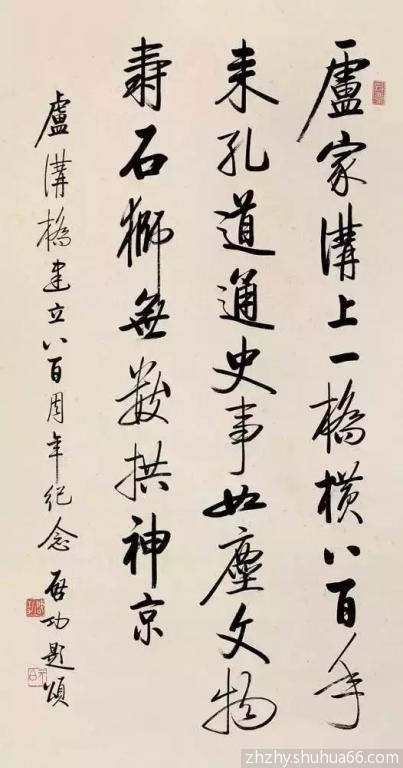 盧家溝上一橋橫八百年
來孔道通史事如塵文物
壽石獅無數拱神京
盧溝橋建立八百周年紀念 啟功題頌
zhzhy.shuhua66.com